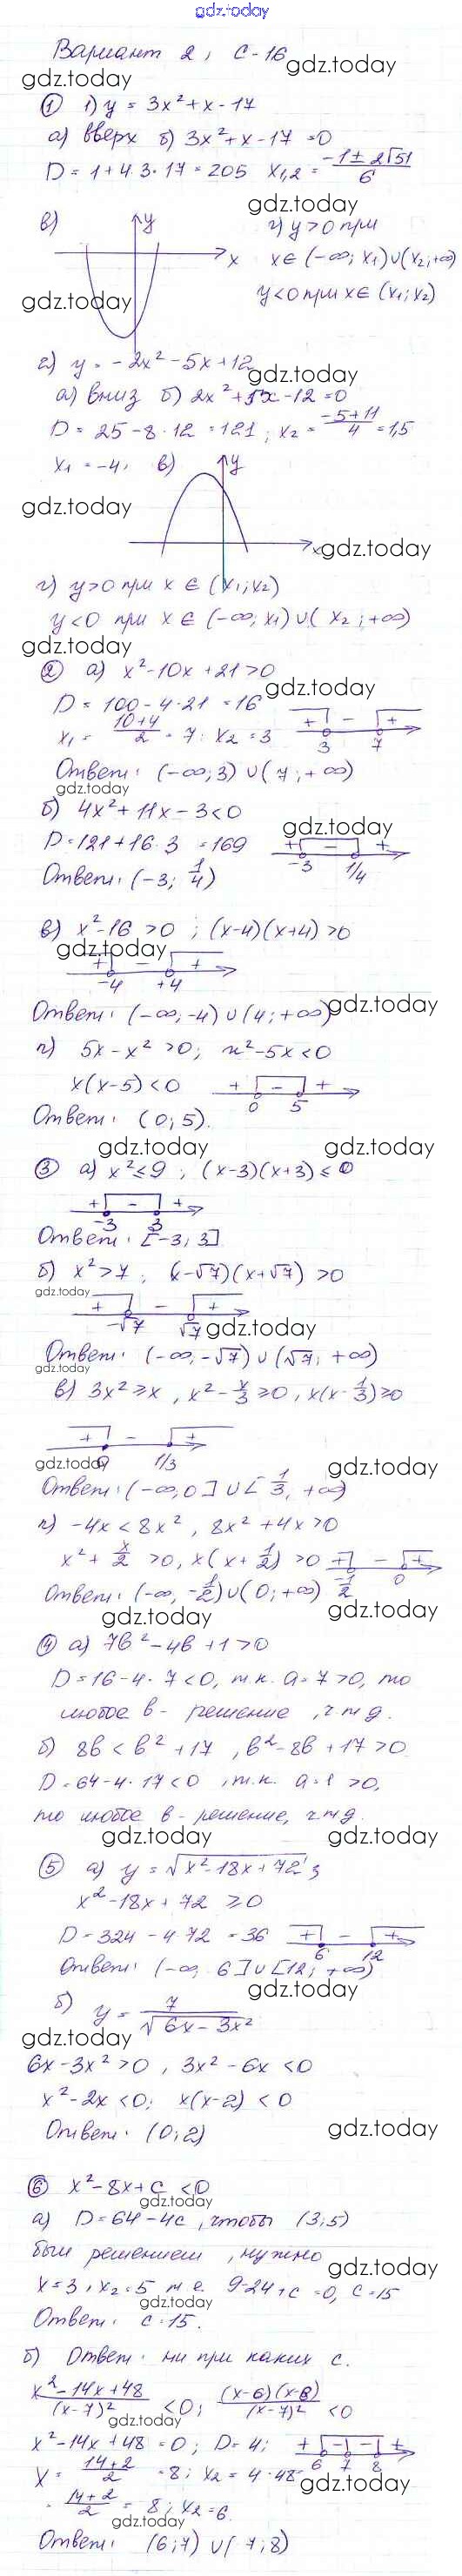 gdz.today
Вариант 2, С-16
gdz.today gdz.today
① 1) y = 3x² + x - 17
а) вверх б) 3x² + x - 17 = 0
D = 1 + 4·3·17 = 205 x₁,₂ = (-1 ± 2√51)/6
gdz.today
в) y г) y > 0 при
x x ∈ (-∞; x₁) ∪ (x₂; +∞)
gdz.today y < 0 при x ∈ (x₁; x₂)
2) y = -2x² - 5x + 12
gdz.today
а) вниз б) 2x² + 5x - 12 = 0
D = 25 - 8·12 = 121; x₂ = (-5+11)/4 = 1,5
x₁ = -4, в) y
gdz.today
x gdz.today
г) y > 0 при x ∈ (x₁; x₂)
y < 0 при x ∈ (-∞; x₁) ∪ (x₂; +∞)
gdz.today
② а) x² - 10x + 21 > 0
gdz.today
D = 100 - 4·21 = 16
x₁ = (10+4)/2 = 7; x₂ = 3 + - +
3 7
Ответ: (-∞; 3) ∪ (7; +∞)
gdz.today
б) 4x² + 11x - 3 < 0
gdz.today
D = 121 + 16·3 = 169 + - +
-3 1/4
Ответ: (-3; 1/4)
в) x² - 16 > 0; (x-4)(x+4) > 0
gdz.today
+ - +
-4 +4
Ответ: (-∞, -4) ∪ (4; +∞) gdz.today
г) 5x - x² > 0; x² - 5x < 0
x(x-5) < 0 + - +
0 5
Ответ: (0; 5).
gdz.today gdz.today
③ а) x² ≤ 9; (x-3)(x+3) ≤ 0
+ - +
-3 3
Ответ: [-3; 3]
б) x² > 7; (x-√7)(x+√7) > 0
gdz.today
+ - +
-√7 √7 gdz.today
Ответ: (-∞, -√7) ∪ (√7; +∞)
gdz.today
в) 3x² ≥ x, x² - x/3 ≥ 0, x(x - 1/3) ≥ 0
+ - +
gdz.today 0 1/3 gdz.today
Ответ: (-∞, 0] ∪ [1/3, +∞)
г) -4x < 8x², 8x² + 4x > 0
x² + x/2 > 0, x(x + 1/2) > 0 + - +
-1/2 0
Ответ: (-∞, -1/2) ∪ (0; +∞)
gdz.today gdz.today
④ а) 7b² - 4b + 1 > 0
D = 16 - 4·7 < 0, т.к. a = 7 > 0, то
любое b - решение, чтд.
б) 8b < b² + 17, b² - 8b + 17 > 0
D = 64 - 4·17 < 0, т.к. a = 1 > 0,
то любое b - решение, чтд.
gdz.today gdz.today
⑤ а) y = √(x² - 18x + 72);
x² - 18x + 72 ≥ 0
D = 324 - 4·72 = 36 + - +
6 12
Ответ: (-∞, 6] ∪ [12; +∞)
gdz.today
б) y = 7/√(6x - 3x²)
gdz.today
6x - 3x² > 0, 3x² - 6x < 0
x² - 2x < 0; x(x-2) < 0
Ответ: (0; 2) gdz.today
⑥ x² - 8x + c < 0
gdz.today
а) D = 64 - 4c, чтобы (3; 5)
были решением, нужно
gdz.today
x = 3, x₂ = 5 т.е. 9 - 24 + c = 0, c = 15
gdz.today
Ответ: c = 15.
б) Ответ: ни при каких c.
(x² - 14x + 48)/(x-7)² < 0; (x-6)(x-8)/(x-7)² < 0
gdz.today
x² - 14x + 48 = 0; D = 4; + - - +
6 7 8
x = (14+2)/2 = 8; x₂ = 4·48=
gdz.today
= (14+2)/2 = 8; x₂ = 6
gdz.today
Ответ: (6; 7) ∪ (7; 8)